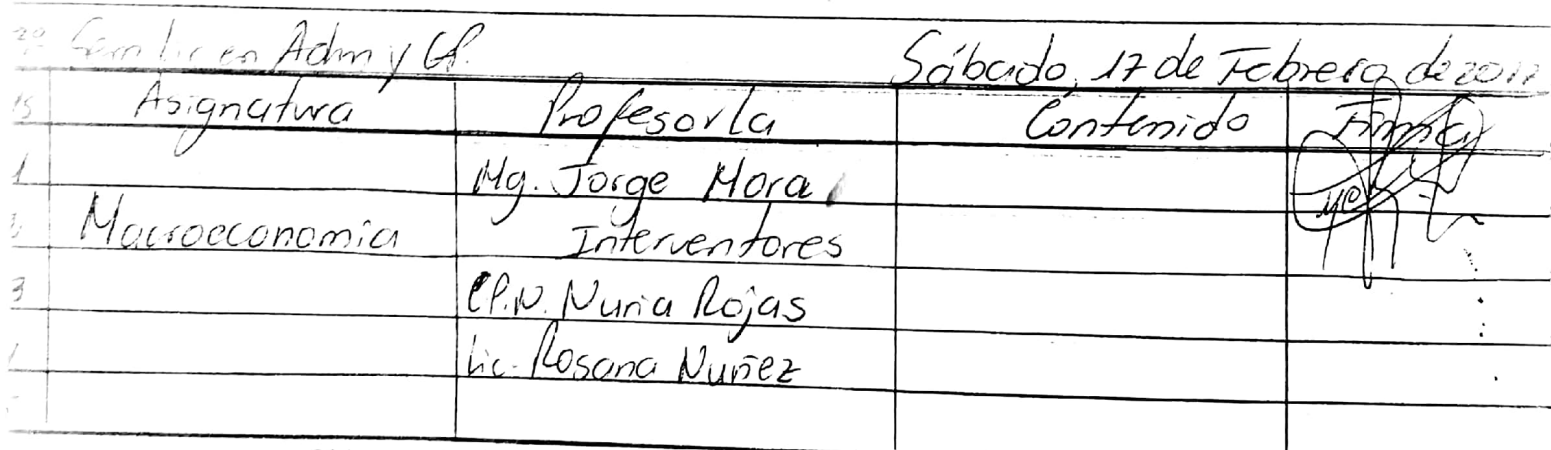 Sem Lic en Adm y CP. Sábado, 17 de Febrero de
Asignatura Profesor/a Contenido Firma
1 Mg. Jorge Mora
Macroeconomia Interventores
3 C.P.N. Nuria Rojas
Lic. Rosana Nuñez